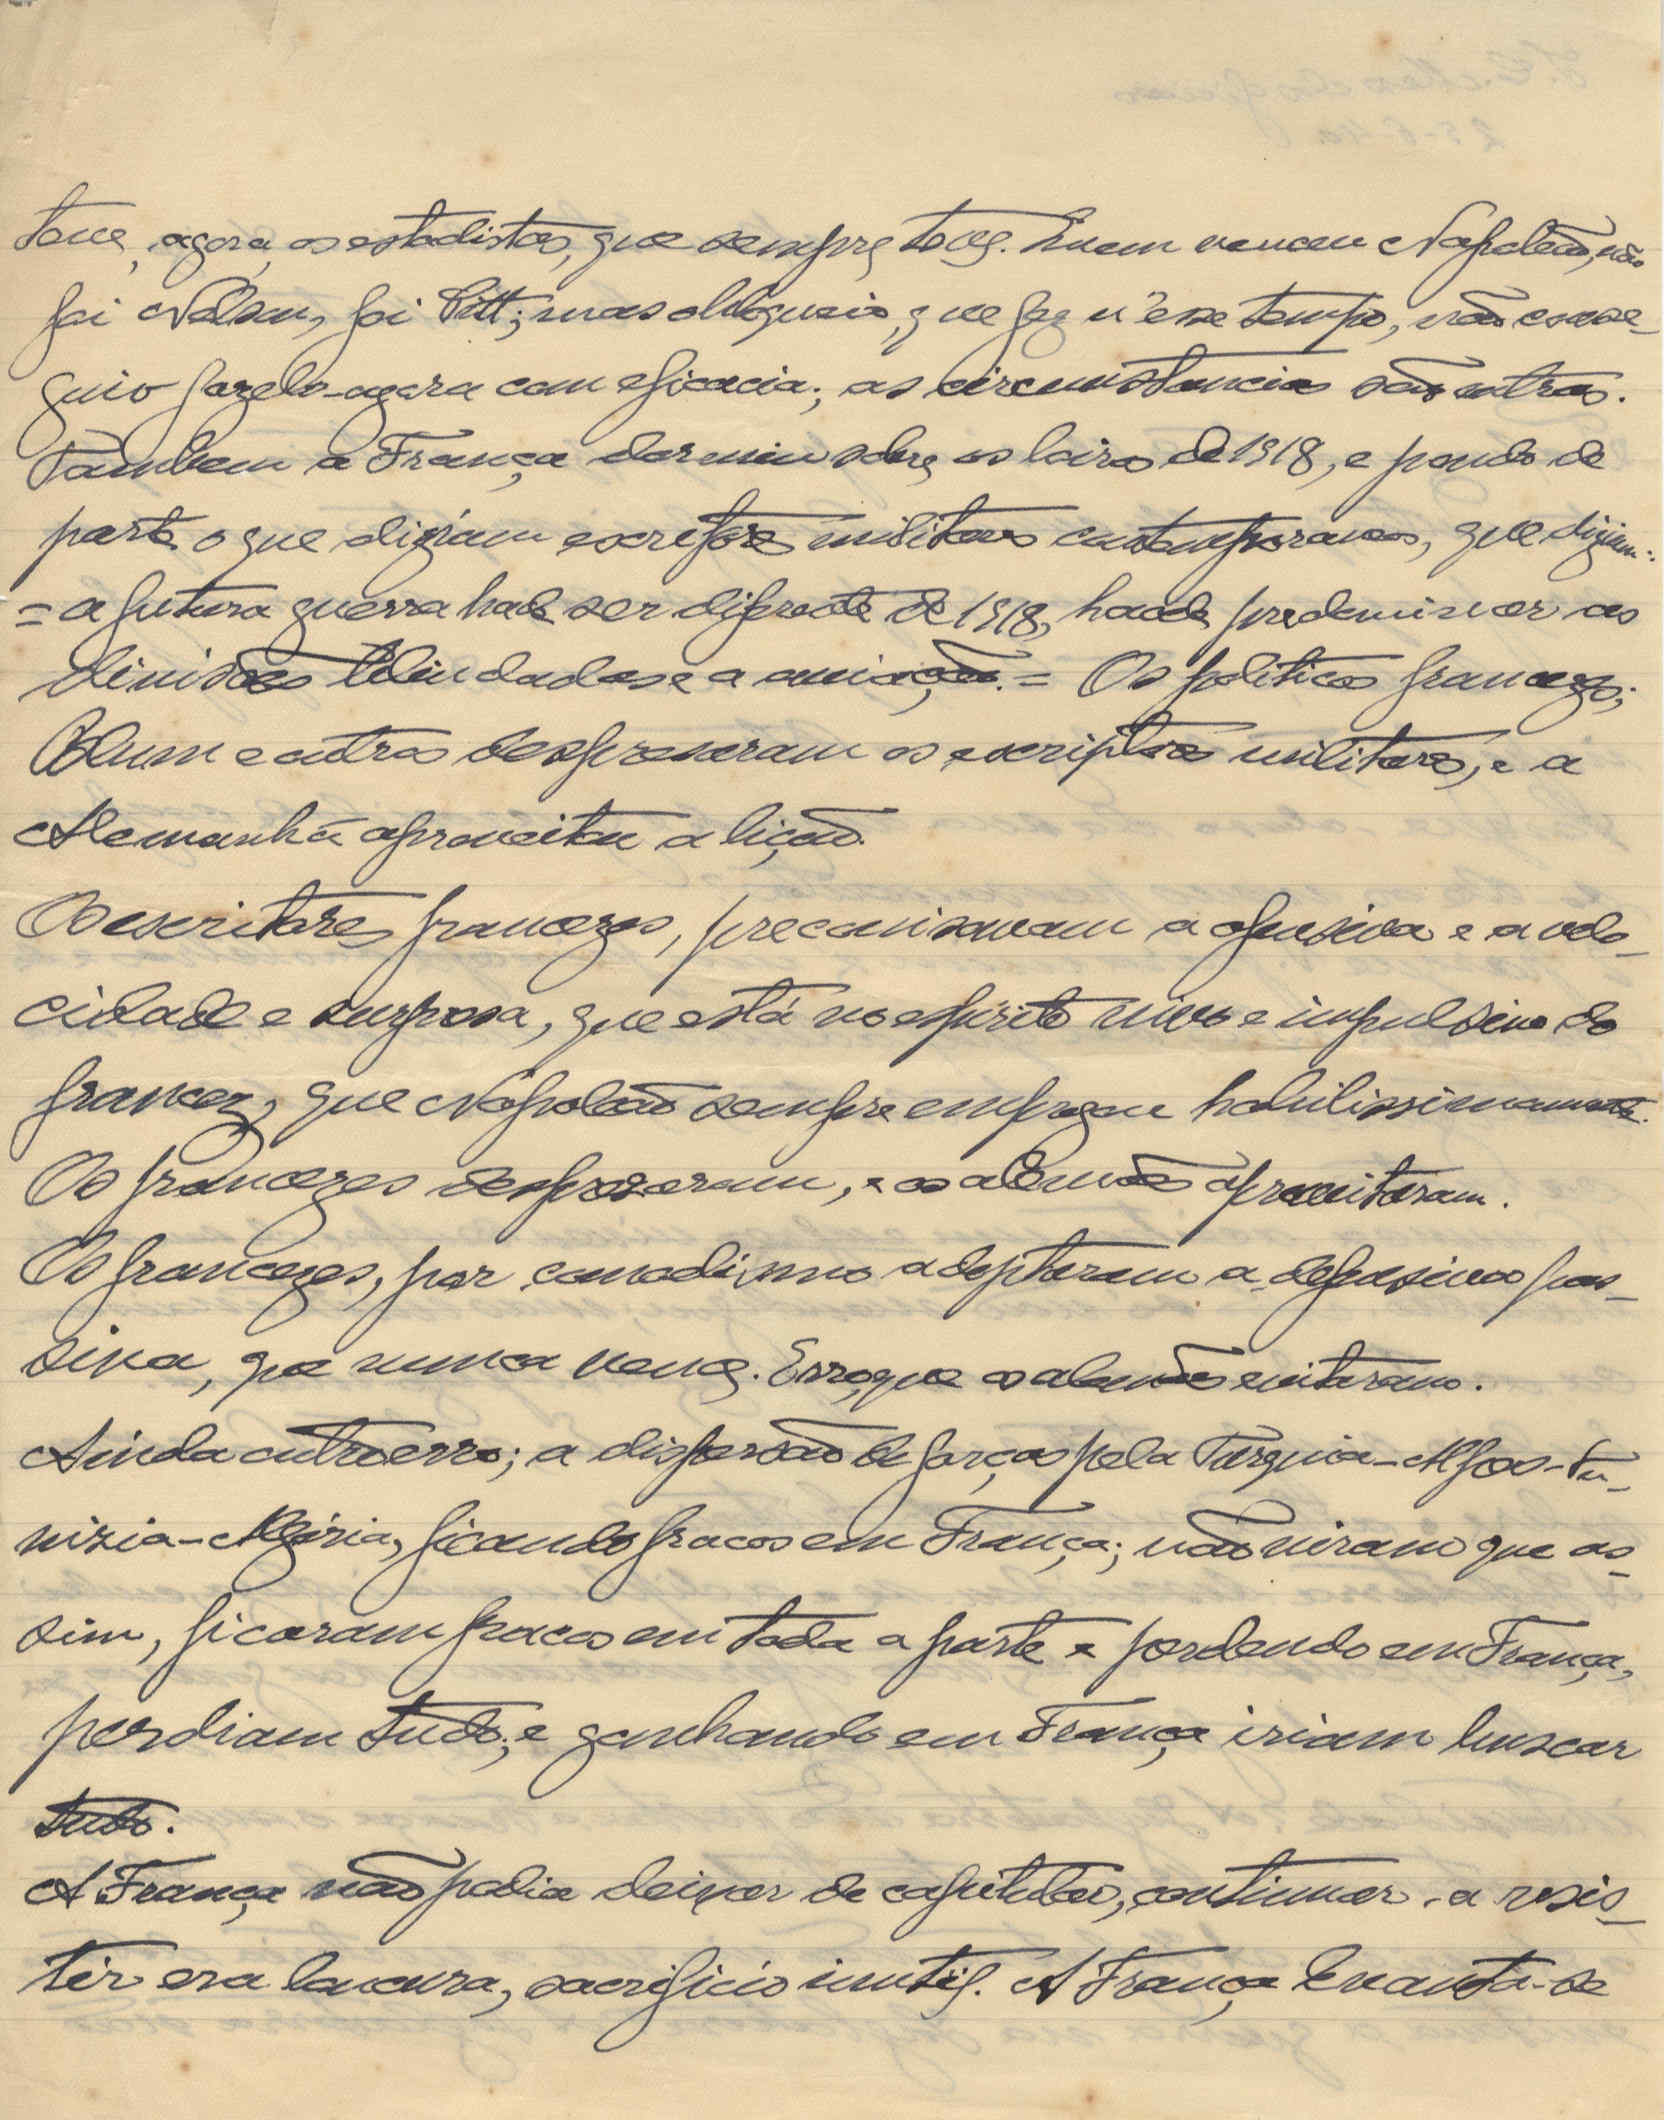 teve, agora, os estadistas, que sempre teve. Quem venceu Napoleão, não
foi Nelson, foi Pitt; mas o bloqueio, que fez n'esse tempo, não conse-
guio fazelo-agora com eficacia; as circumstancias são outras.
Tambem a França dormiu sobre os loiros de 1918, e pondo de
parte o que diziam escritores militares contemporaneos, que diziam:
= a futura guerra hade ser diferente de 1918, hade predominar as
divisões blindadas e a aviação. = Os politicos francezes;
Blum e outros despresaram os escriptores militares, e a
Alemanha aproveitou a lição.
Os escritores francezes, preconisavam a ofensiva e a velo-
cidade e surpresa, que está no espirito vivo e impulsivo do
francez, que Napoleão sempre empregou habilissimamente.
Os francezes despresaram, e os alemães aproveitaram.
Os francezes, por comodismo adoptaram a defensiva pas-
siva, que nunca vence. Erro, que os alemães evitaram.
Ainda outro erro; a dispersão de forças pela Turquia-Alpes-Tu-
nizia-Algiria, ficando fracos em França; não viram que as-
sim, ficaram fracos em toda a parte e perdendo em França,
perdiam tudo; e ganhando em França iriam buscar
tudo.
A França não podia deixar de capitular, continuar a resis-
tir era loucura, sacrificio inutil. A França levanta-se